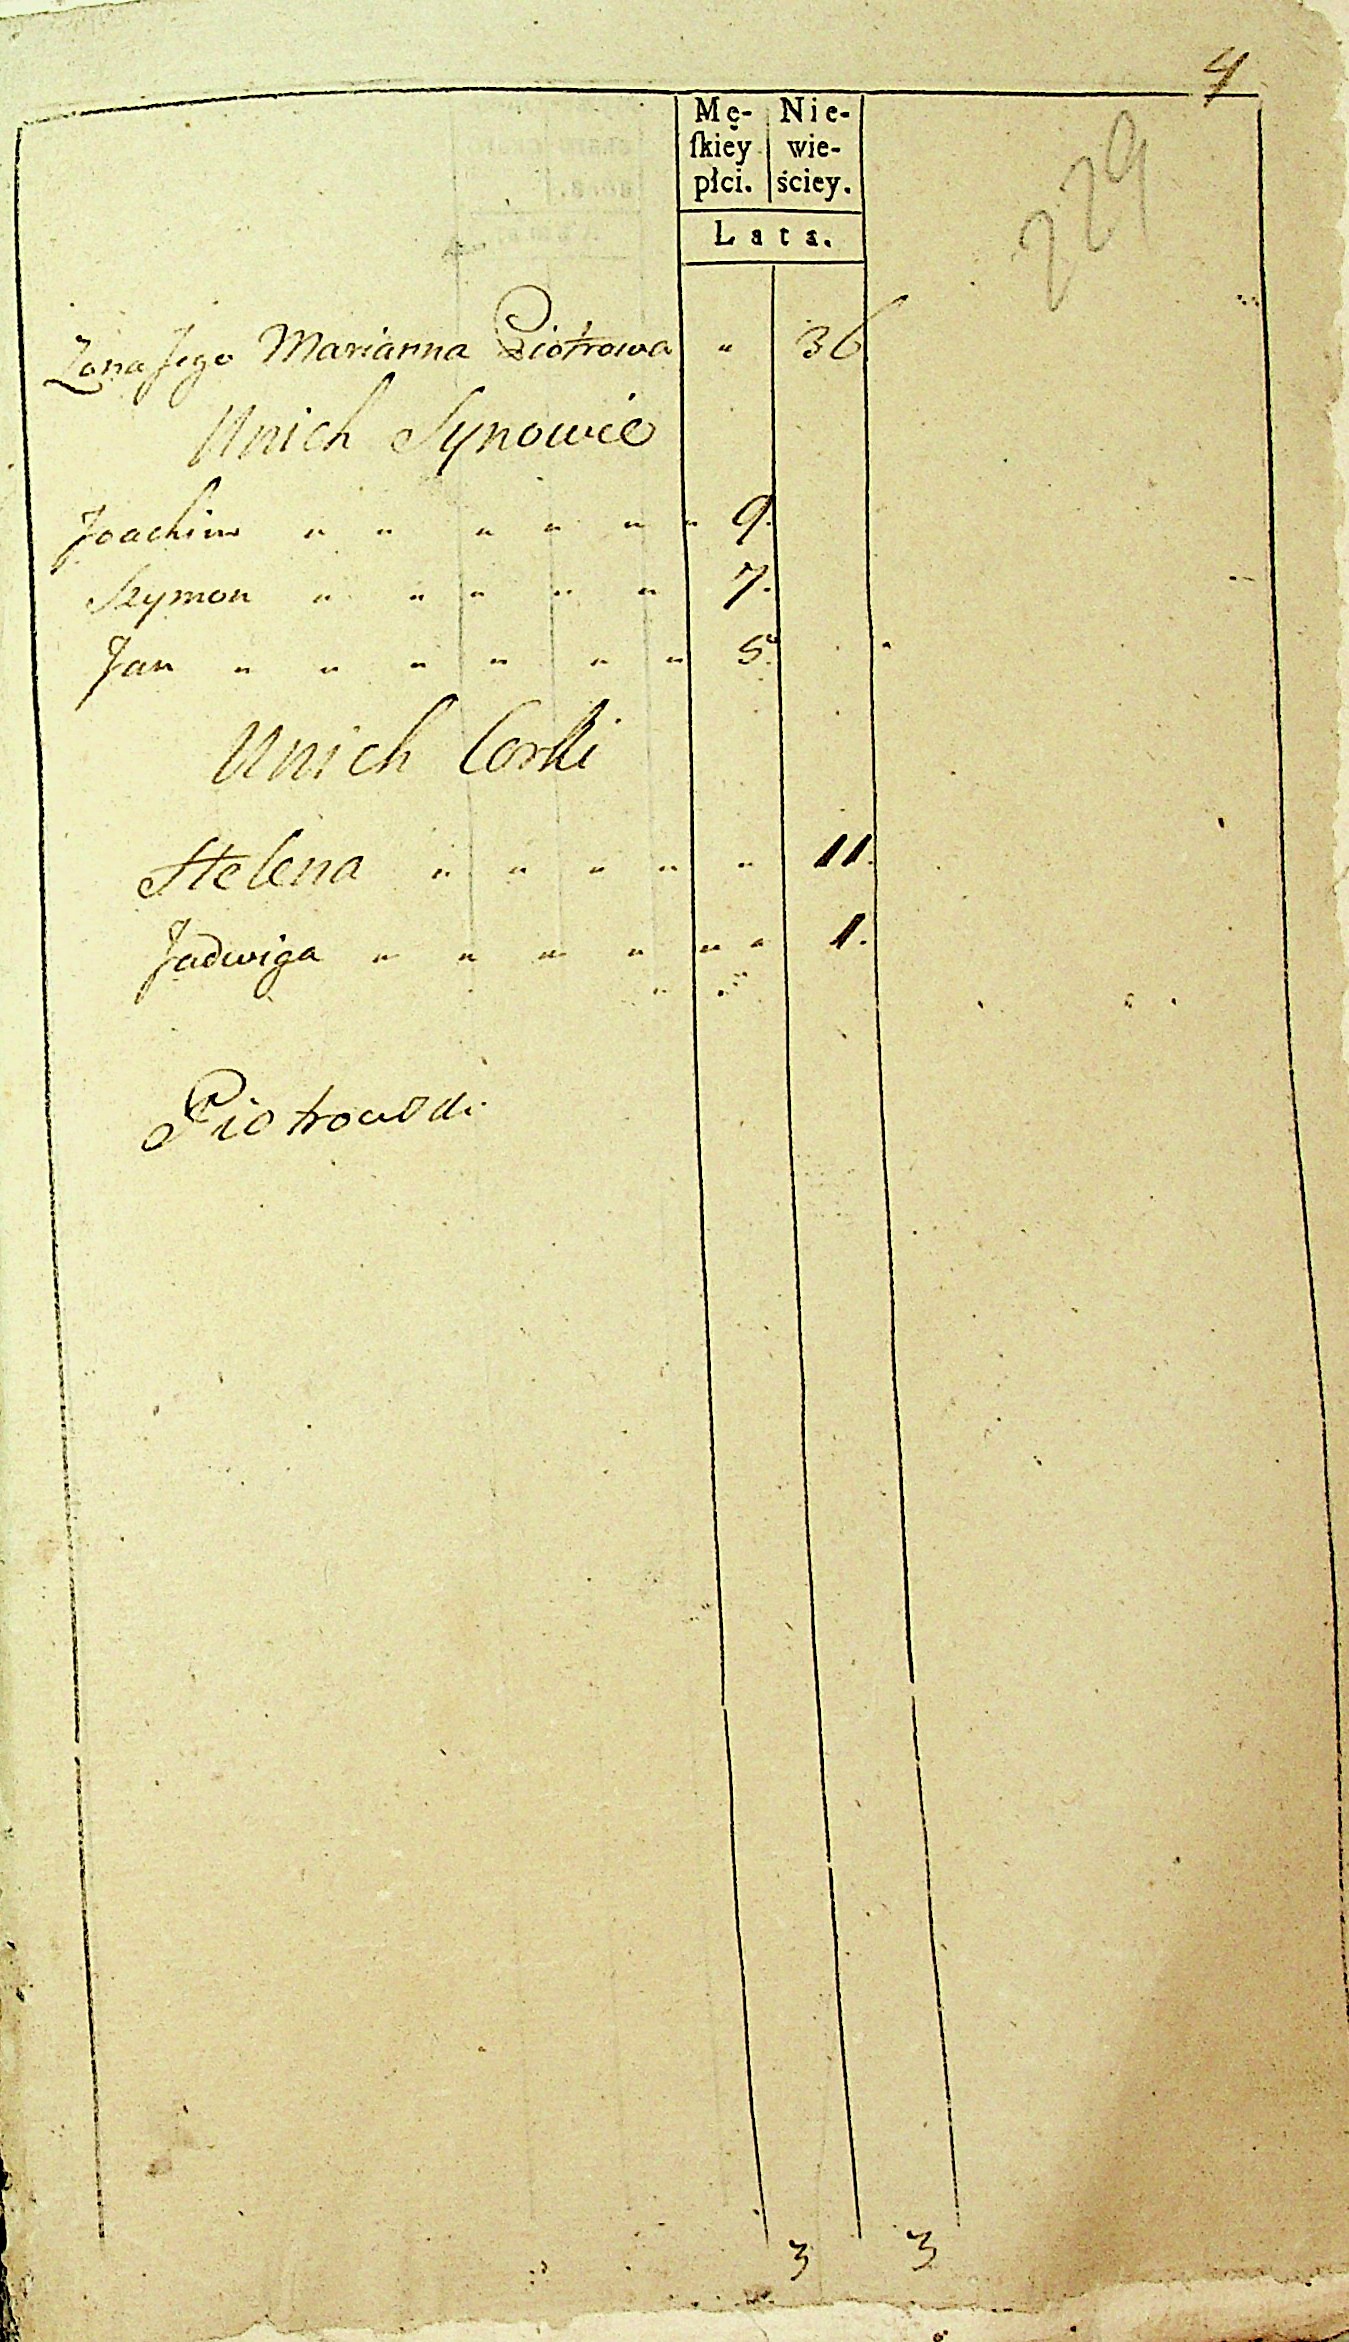 4
229
Mę- Nie-
ſkiey wie-
płci. ściey.
Lata.
Zona Jego Marianna Piotrowa " 36
Unich Synowie
Joachim " " " " " " 9.
Szymon " " " " " 7.
Jan " " " " " " 5.
Unich Corki
Helena " " " " " 11.
Jadwiga " " " " " " 1.
Piotrowski
3 3